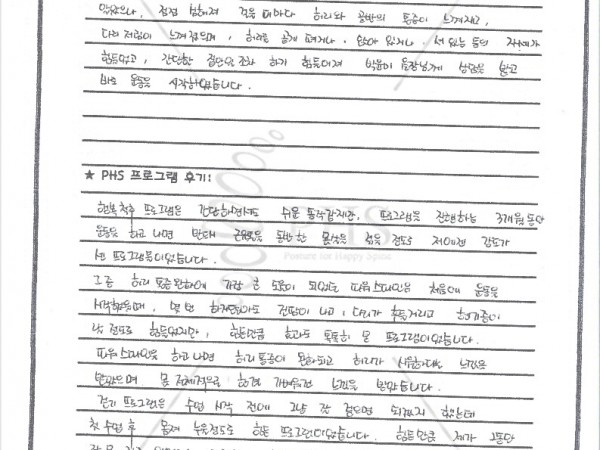 않았으나, 점점 심해져 걸을 때마다 허리와 골반의 통증이 느껴지고,
다리 저림이 느껴졌으며, 허리를 곧게 펴거나, 앉아 있거나, 서 있는 등의 자세가
힘들었고, 간단한 집안일 조차 하기 힘들어져 박윤미 원장님께 상담을 받고
바로 운동을 시작하였습니다.
★ PHS 프로그램 후기:
행복척추 프로그램은 간단하면서도 쉬운 동작같지만, 프로그램을 진행하는 3개월동안
운동을 하고 나면 반드시 근육통을 동반한 몸살을 앓을 정도로 제게는 강도가
센 프로그램이었습니다.
그 중 허리 통증완화에 가장 큰 도움이 되었던 파워스파인은 처음에 운동을
시작했을때, 몇 번 하지않아도 진땀이 나고, 다리가 후들거리고 현기증이
날 정도로 힘들었지만, 힘든만큼 효과도 톡톡히 본 프로그램이었습니다.
파워스파인을 하고 나면 허리통증이 완화되고 허리가 시원하다는 느낌을
받았으며 몸 전체적으로 훨씬 가벼워진 느낌을 받았습니다.
걷기 프로그램은 수업 시작 전에 그냥 잘 걸으면 되겠지 했는데
첫 수업 후 몸져 누울정도로 힘든 프로그램이었습니다. 힘든만큼 제가 그동안
PHS
Posture for Happy Spine